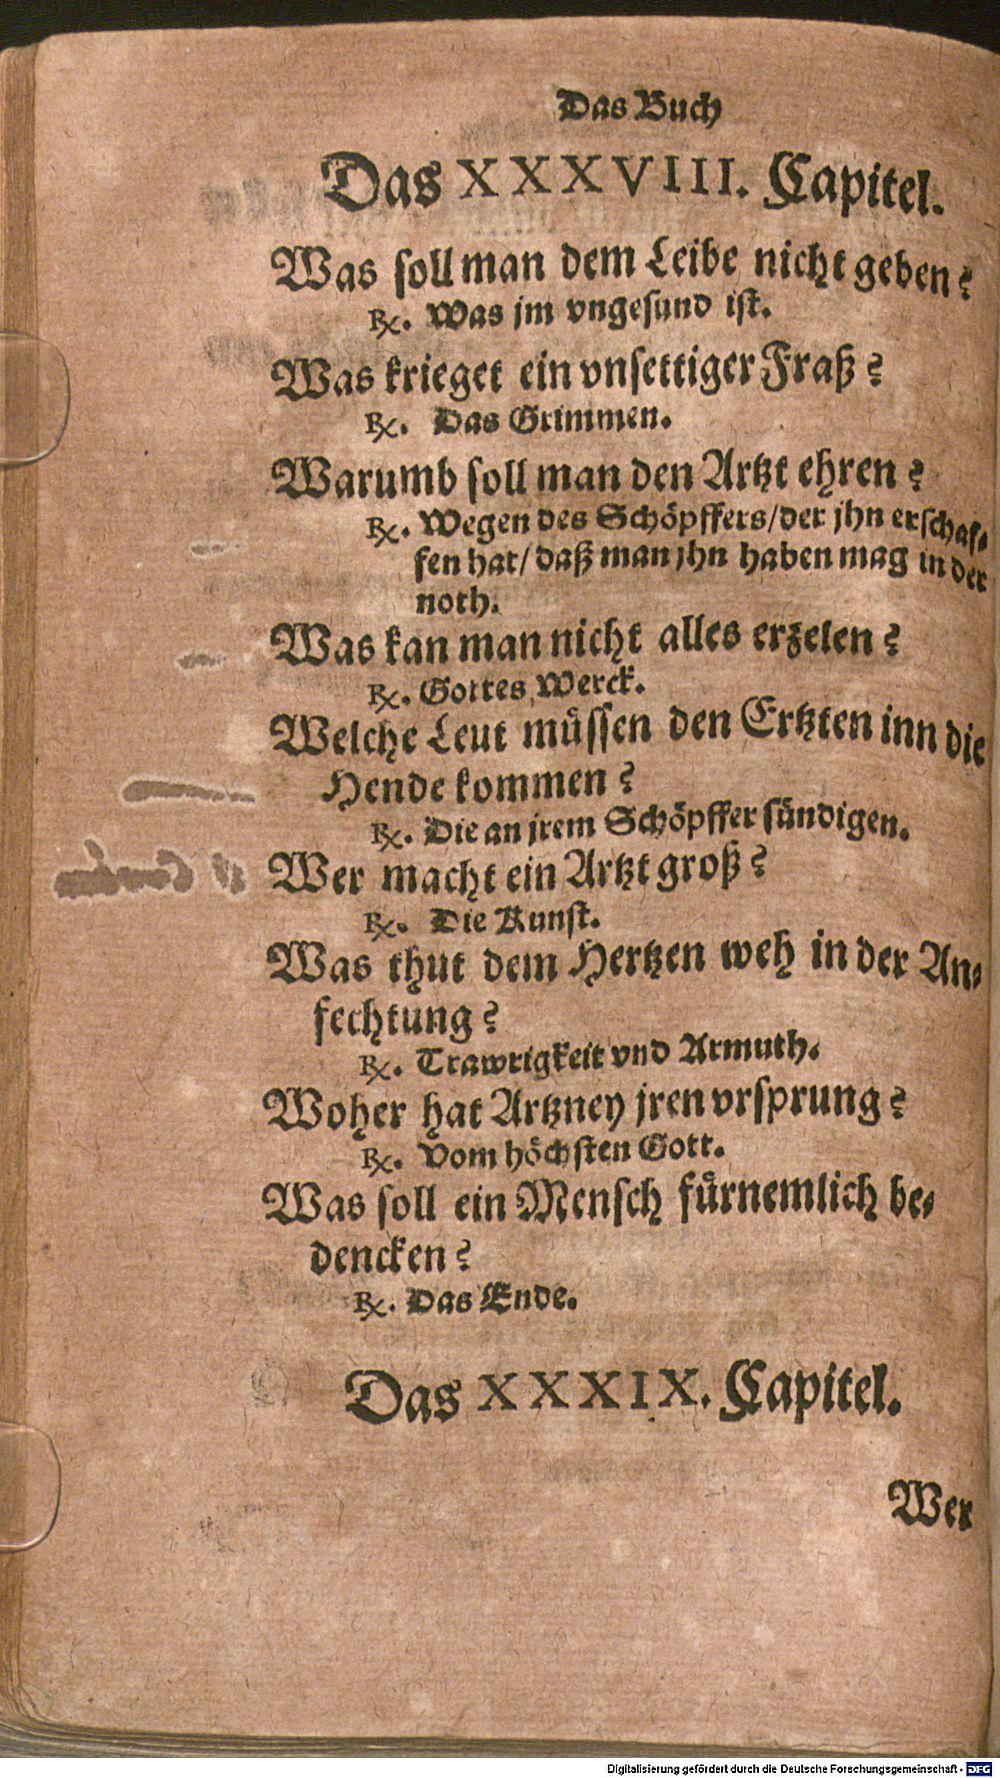 Das Buch
Das XXXVIII. Capitel.
Was soll man dem Leibe nicht geben?
℞. Was jm vngesund ist.
Was krieget ein vnsettiger Fraß?
℞. Das Grimmen.
Warumb soll man den Artzt ehren?
℞. Wegen des Schöpffers/der jhn erschaf-
fen hat/daß man jhn haben mag in der
noth.
Was kan man nicht alles erzelen?
℞. Gottes Werck.
Welche Leut müssen den Ertzten inn die
Hende kommen?
℞. Die an jrem Schöpffer sündigen.
Wer macht ein Artzt groß?
℞. Die Kunst.
Was thut dem Hertzen weh in der An-
fechtung?
℞. Trawrigkeit vnd Armuth.
Woher hat Artzney jren vrsprung?
℞. Vom höchsten Gott.
Was soll ein Mensch fürnemlich be-
dencken?
℞. Das Ende.
Das XXXIX. Capitel.
Wer
Digitalisierung gefördert durch die Deutsche Forschungsgemeinschaft - DFG